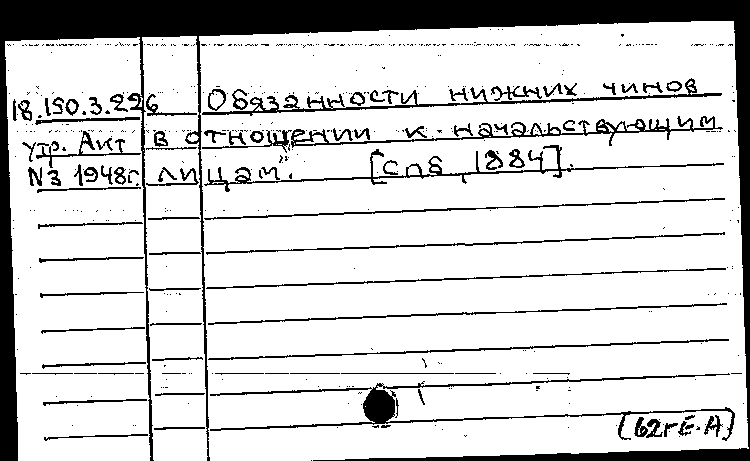 18.150.3.226 Обязанности нижних чинов
утр. Акт в отношении к начальствующим
№3 1948г. лицам". [Спб, 1884].
(62гЕ.А)